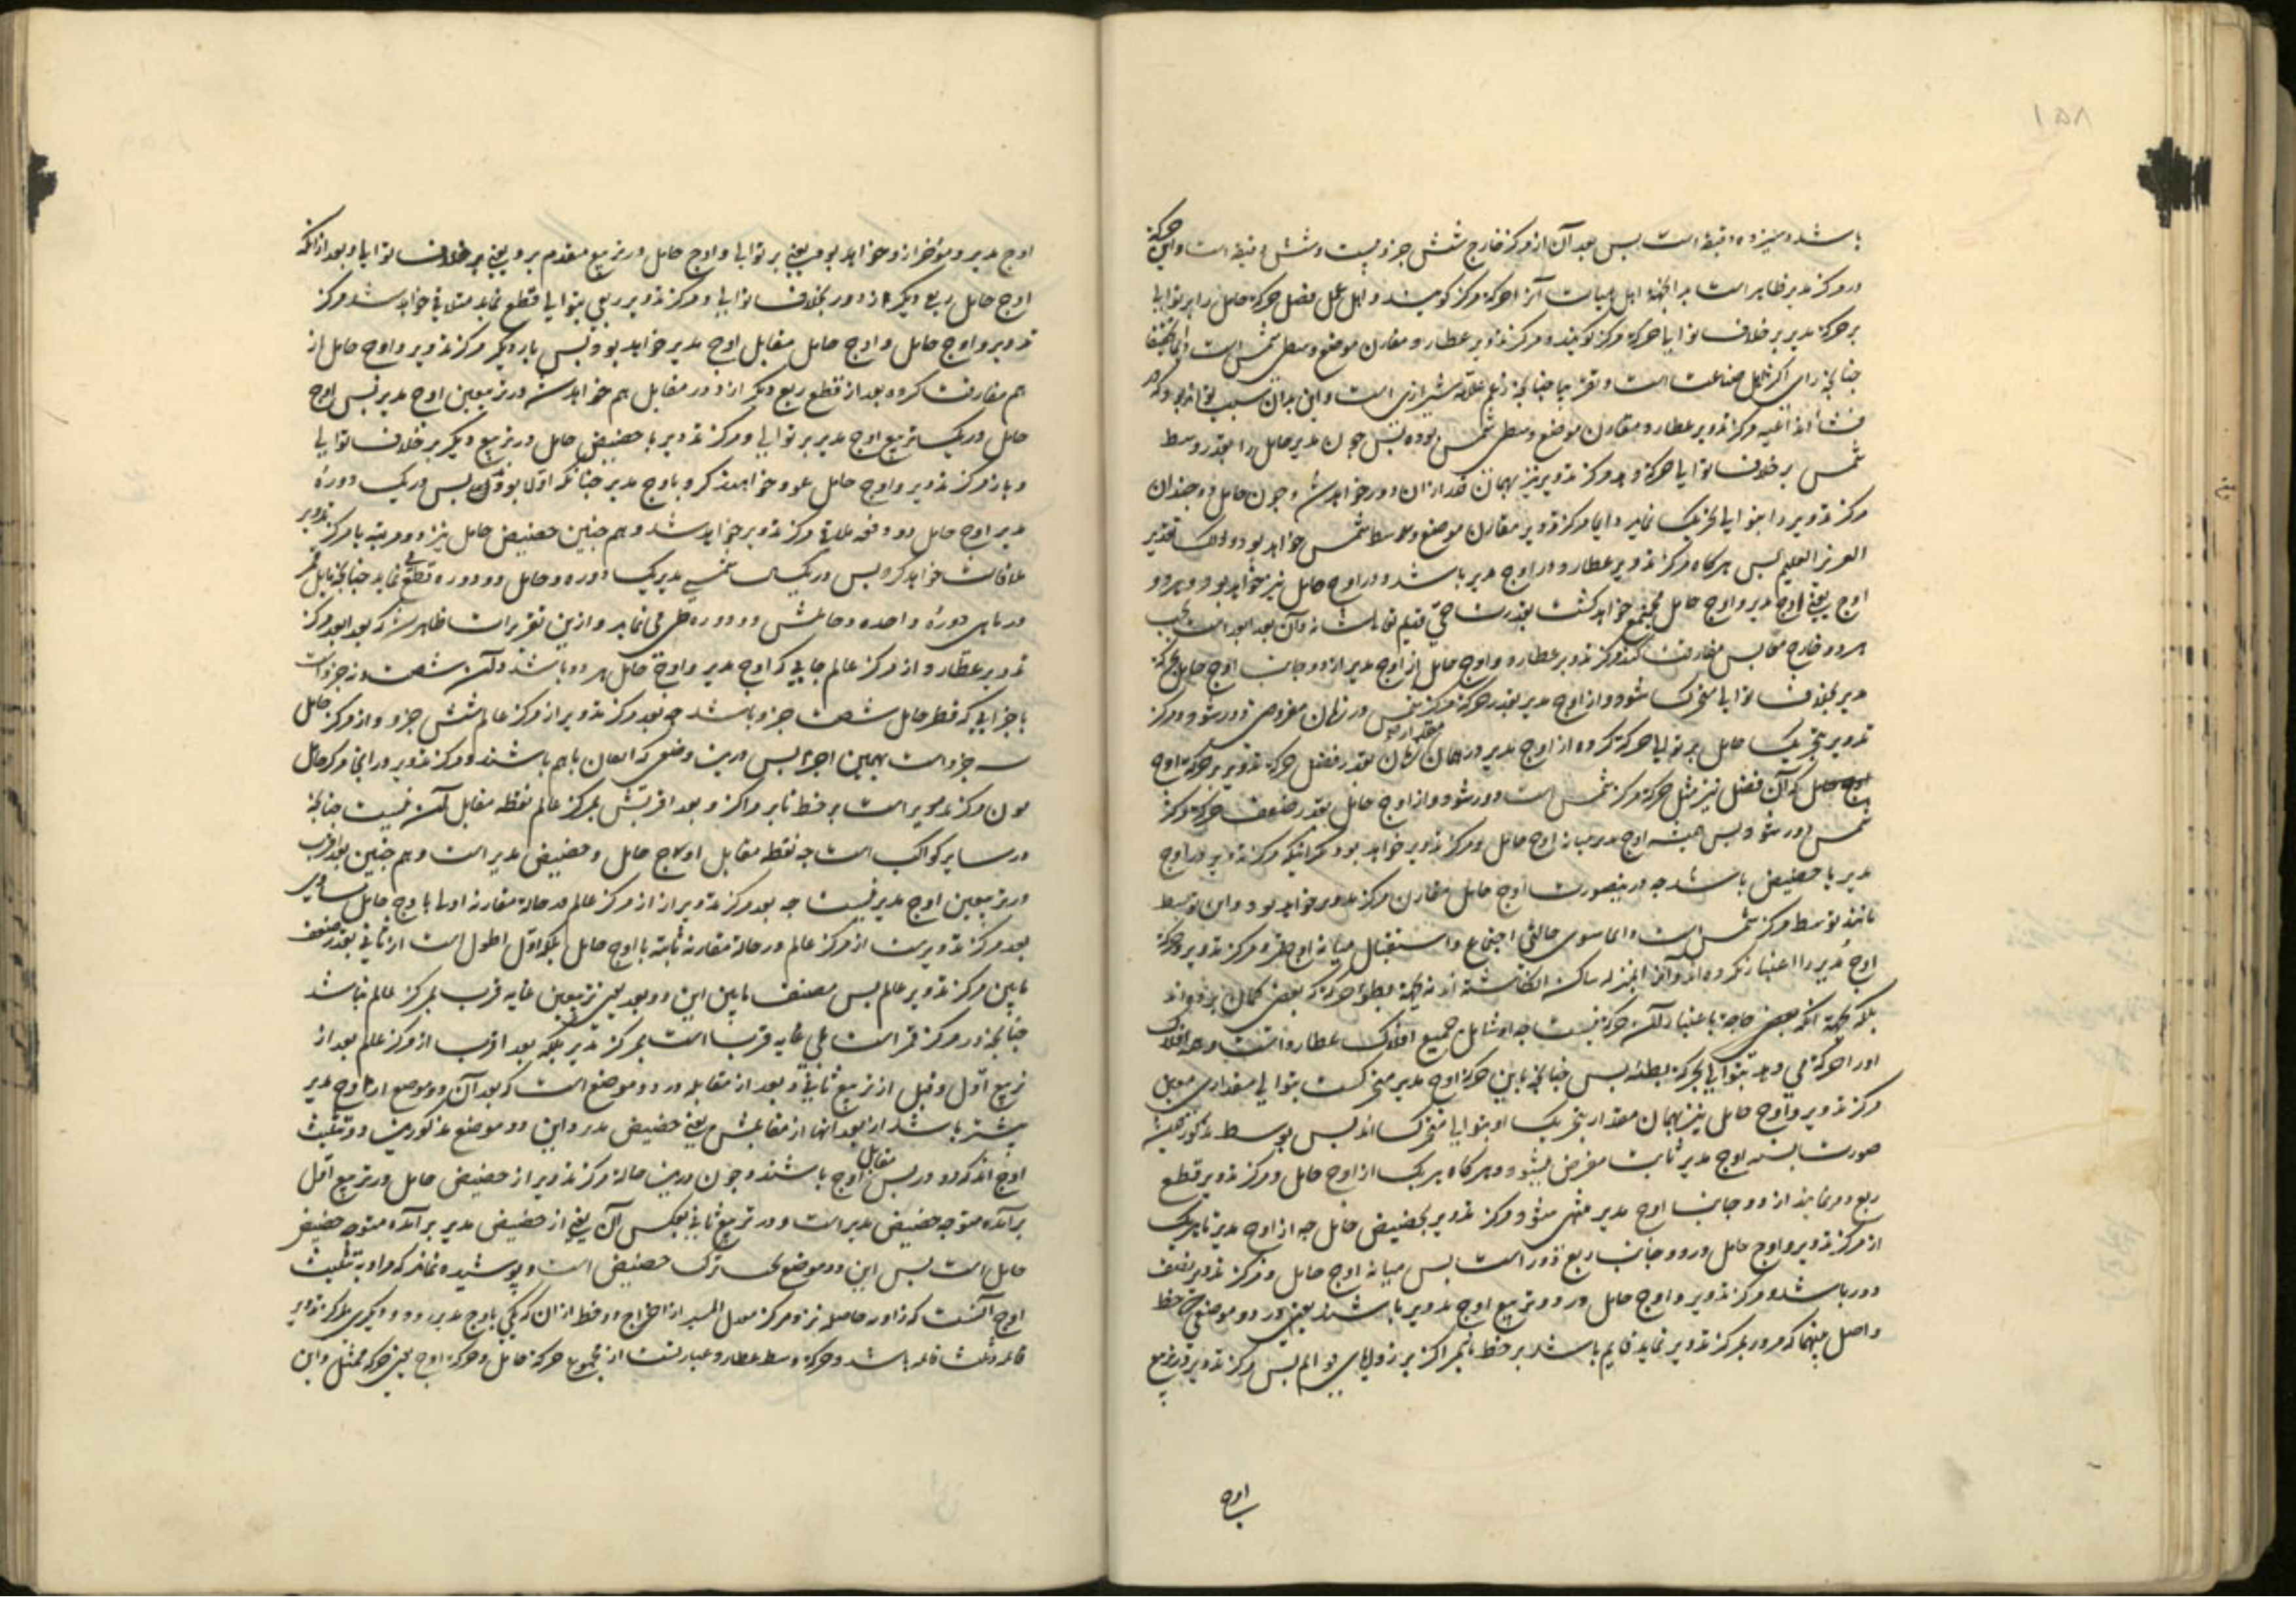 ۱۵۸
باشد و سیزده دقیقه است پس بعد آن از مرکز خارج شش جزو و بیست و شش دقیقه است و این حرکة
در مرکز تدویر ظاهر است بدانجهة اهل هیأت آنرا حرکة مرکز کویند و اهل عمل فضل حرکة حامل را بر توالی
بر حرکة مدیر بر خلاف توالی حرکة مرکز کویند و مرکز تدویر عطارد مقارن موضع وسطی شمس است دایما تحقیقا
چنانچه رای اکثر اهل صناعت است و تقریبا چنانچه زعم علامه شیرازی است و این بدان سبب تواند بود که در
مرکز تدویر عطارد مقارن موضع وسطی شمس بوده پس چون مدیر حامل را بقدر وسط
شمس بر خلاف توالی حرکة دهد مرکز تدویر نیز بهمان قدر از ان دور خواهد شد و چون حامل دو چندان
مرکز تدویر را بتوالی تحریک نماید دایما مرکز تدویر مقارن موضع وسط شمس خواهد بود و ذلک تقدیر
العزیز العلیم پس هرکاه مرکز تدویر عطارد در اوج مدیر باشد در اوج حامل نیز خواهد بود و هر دو
اوج یعنی اوج مدیر و اوج حامل مجتمع خواهد کشت بقدرت حی قدیم تعالی شانه و آن بعد ابعد است بحسب
هر دو خارج معا پس مفارقت کند مرکز تدویر عطارد و اوج حامل از اوج مدیر از دو جانب اوج حامل بحرکة
مدیر بخلاف توالی متحرک شود و از اوج مدیر بقدر حرکة مرکز شمس در زمان مفروض دور شود و مرکز
تدویر بتحریک حامل بر توالی حرکة کرده از اوج مدیر در همان زمان بقدر فضل حرکة تدویر بر حرکة اوج
حامل که آن فضل نیز مثل حرکة مرکز شمس است دور شود و از اوج حامل بقدر ضعف حرکة مرکز
شمس دور شود پس همیشه اوج مدیر میانه اوج حامل و مرکز تدویر خواهد بود مکر آنکه مرکز تدویر در اوج
مدیر یا حضیض باشد چه درینصورت اوج حامل مقارن مرکز تدویر خواهد بود و این توسط
مانند توسط مرکز شمس است دایما سوی حالتی اجتماع و استقبال میانه اوج قمر و مرکز تدویر و حرکة
اوج مدیر را اعتبار نکرده اند و آنرا بمنزله ساکن انکاشته اند نه بجهة بطؤ حرکة که بعضی کمان برده اند
بلکه بجهة آنکه بعضی حاجة باعتبار آن حرکة نیست چه او شامل جمیع افلاک عطارد است و همه افلاک
او را حرکة می دهد بتوالی بحرکة بطئه پس چنانچه باین حرکة اوج مدیر متحرکست بتوالی مقداری
مرکز تدویر و اوج حامل نیز بهمان مقدار بتحریک او بتوالی متحرک اند پس توسط مذکور همیشه
صورت بسته اوج مدیر ثابت مفرض میشود و هرکاه هر یک از اوج حامل و مرکز تدویر قطع
ربع دور نمایند از دو جانب اوج مدیر منتهی میشود مرکز تدویر بحضیض حامل چه از اوج مدیر تا هر یک
از مرکز تدویر و اوج حامل در دو جانب ربع دور است پس میانه اوج حامل و مرکز تدویر نصف
دور باشد و مرکز تدویر و اوج حامل در دو تربیع اوج مدیر باشند یعنی در دو موضعی که خط
واصل بینهما که مرور بمرکز تدویر نماید قایم باشد بر خط مار بمراکز بر زوایای قوایم پس مرکز تدویر در تربیع
اوج
اوج مدیر و مؤخر ازو خواهد بود یعنی بر توالی و اوج حامل در تربیع مقدم برو یعنی بر خلاف توالی و بعد از آنکه
اوج حامل ربع دیکر از دور بخلاف توالی و مرکز تدویر ربعی بتوالی قطع نماید متلاقی خواهد شد مرکز
تدویر و اوج حامل و اوج حامل مقابل اوج مدیر خواهد بود پس بار دیکر مرکز تدویر و اوج حامل از
هم مفارقت کرده بعد از قطع ربع دیکر از دور مقابل هم خواهند شد در تربیعین اوج مدیر پس اوج
حامل در یک تربیع اوج مدیر بر توالی و مرکز تدویر با حضیض حامل در تربیع دیکر بر خلاف توالی
و باز مرکز تدویر و اوج حامل عود خواهند کرد باوج مدیر چنانکه اول بود پس در یک دورهٔ
مدیر اوج حامل دو دفعه ملاقی مرکز تدویر خواهد شد و هم چنین حضیض حامل نیز دو مرتبه با مرکز تدویر
ملاقات خواهد کرد پس در یکسال شمسی مدیر یک دوره و حامل دو دوره قطع می نماید چنانچه مایل قمر
در ماهی دورهٔ واحده و حاملش دو دوره طی می نماید و ازین تقریرات ظاهر شد که بعد ابعد مرکز
تدویر عطارد از مرکز عالم جایی که اوج مدیر و اوج حامل هر دو باشد و آن شصت و نه جزو است
باجزایی که قطر حامل شصت جزو باشد چه بعد مرکز تدویر از مرکز عالم شش جزو و از مرکز حامل
سه جزو است بهمین اجزا پس درین وضعی که اوجان باهم باشند و مرکز تدویر در انجا مرکز حامل
مرکز مدیر است بر خط مار بمراکز و بعد اقربش بمرکز عالم نقطه مقابل آن نیست چنانچه
در سایر کواکب است چه نقطه مقابل اوج حامل و حضیض مدیر است و هم چنین بعد اقرب
در تربیعین اوج مدیر نیست چه بعد مرکز تدویر از مرکز عالم در حالة مقارنه اولی با اوج حامل مساوی
بعد مرکز تدویر نیست از مرکز عالم در حالة مقارنه ثانیه با اوج حامل بلکه اول اطول است از ثانی بقدر ضعف
مابین مرکز تدویر عالم پس مصنف مابین این دو بعد یعنی تربیعین غایه قرب بمرکز عالم نباشد
چنانچه در مرکز قمر است بلی غایه قرب است بمرکز مدیر بلکه بعد اقرب از مرکز عالم بعد از
تربیع اول و قبل از تربیع ثانی و بعد از مقابله در دو موضع است که بعد آن دو موضع از اوج مدیر
بیشتر باشد از بعد آنها از مقابلش یعنی حضیض مدیر و این دو موضع مذکورین دو تثلیث
اوج اند که در دو پس مقابل اوج باشند و چون درین حالة مرکز تدویر از حضیض حامل در تربیع اول
برآمده متوجه حضیض مدیر است و در تربیع ثانی بعکس آن یعنی از حضیض مدیر برآمده متوجه حضیض
حامل است پس این دو موضع مشترک حضیض است و پوشیده نماند که مراد به تثلیث
اوج آنست که زاویه حاصله نزد مرکز معدل المسیر از اخراج دو خط از ان که یکی باوج مدیر رود و دیکری بمرکز تدویر
قایمه و ثلث قایمه باشد و حرکة وسط عطارد عبارتست از مجموع حرکة حامل و حرکة اوج یعنی حرکة ممثل و این